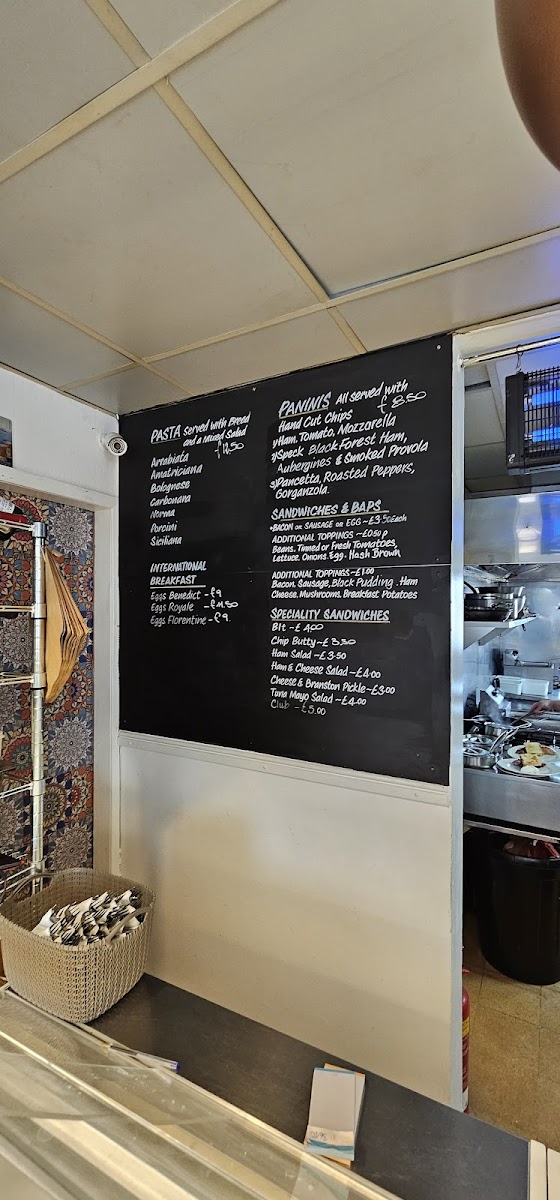 PASTA Served with Bread
and a Mixed Salad
Arrabiata
Amatriciana
Bolognese
Carbonara
Norma
Porcini
Siciliana
INTERNATIONAL
BREAKFAST
Eggs Benedict - £9
Eggs Royale - £11.50
Eggs Florentine - £9
PANINIS All served with
Hand Cut Chips £8.50
1) Ham, Tomato, Mozzarella
2) Speck Black Forest Ham,
Aubergines & Smoked Provola
3) Pancetta, Roasted Peppers,
Gorganzola.
SANDWICHES & BAPS
•BACON OR SAUSAGE OR EGG ~ £3.50 Each
ADDITIONAL TOPPINGS ~£0.50p
Beans, Tinned or Fresh Tomatoes,
Lettuce, Onions, Egg, Hash Brown
ADDITIONAL TOPPINGS ~£1.00
Bacon, Sausage, Black Pudding, Ham
Cheese, Mushrooms, Breakfast Potatoes
SPECIALITY SANDWICHES
Blt ~ £4.00
Chip Butty ~ £3.50
Ham Salad ~ £3.50
Ham & Cheese Salad ~ £4.00
Cheese & Branston Pickle ~ £3.00
Tuna Mayo Salad ~ £4.00
Club ~ £5.00